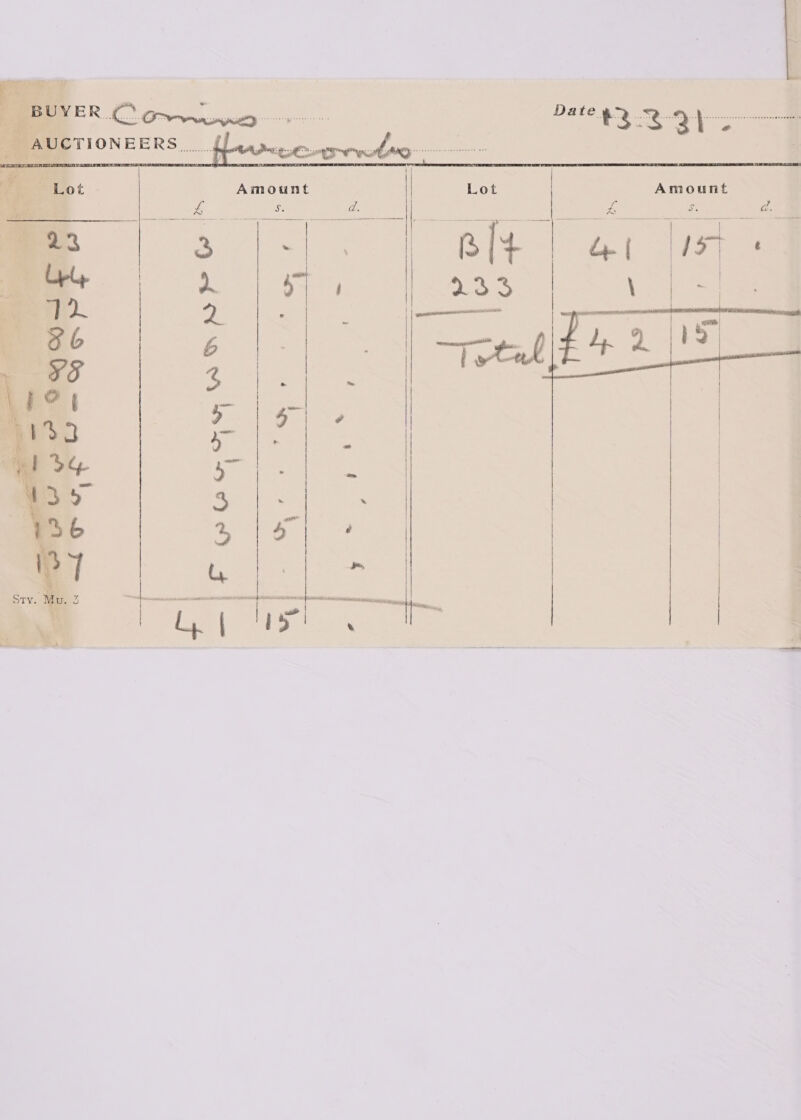 BUYER Comins Date 13.3.31.
AUCTIONEERS Hurcombs
Lot Amount Lot Amount
£ s. d. £ s. d.
23 3 - - B/f 41 15 -
44 2 5 - 233 1 - -
72 2 - - Total £42 15
86 6 - -
88 3 - -
101 5 5 -
133 5 - -
134 5 - -
135 3 - -
136 3 5 -
137 4 - -
Sty. Mu. 3
41 15 -